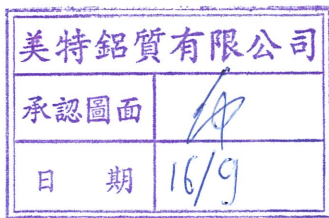 美特鋁質有限公司
承認圖面
日 期 16/9